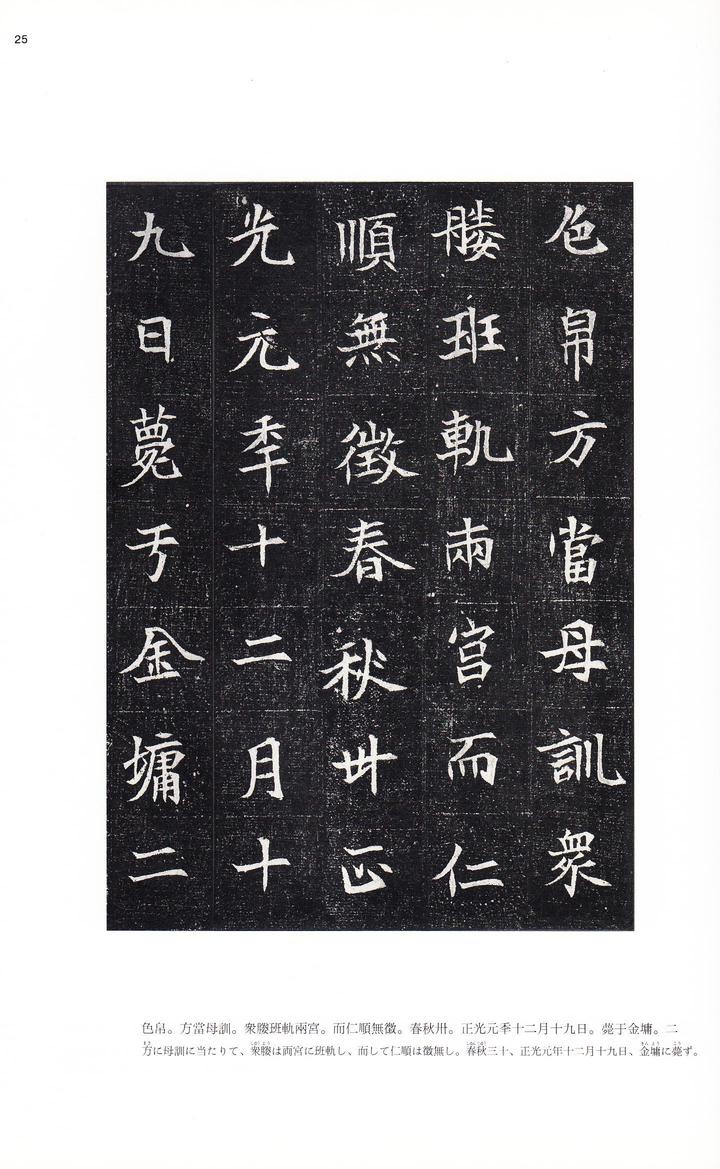 25
色帛方當母訓衆
媵班軌兩宮而仁
順無徵春秋卅正
光元秊十二月十
九日薨于金墉二
色帛。方當母訓。衆媵班軌兩宮。而仁順無徴。春秋卅。正光元秊十二月十九日。薨于金墉。二
方に母訓に当たりて、衆媵は両宮に班軌し、而して仁順は徴無し。春秋三十、正光元年十二月十九日、金墉に薨ず。